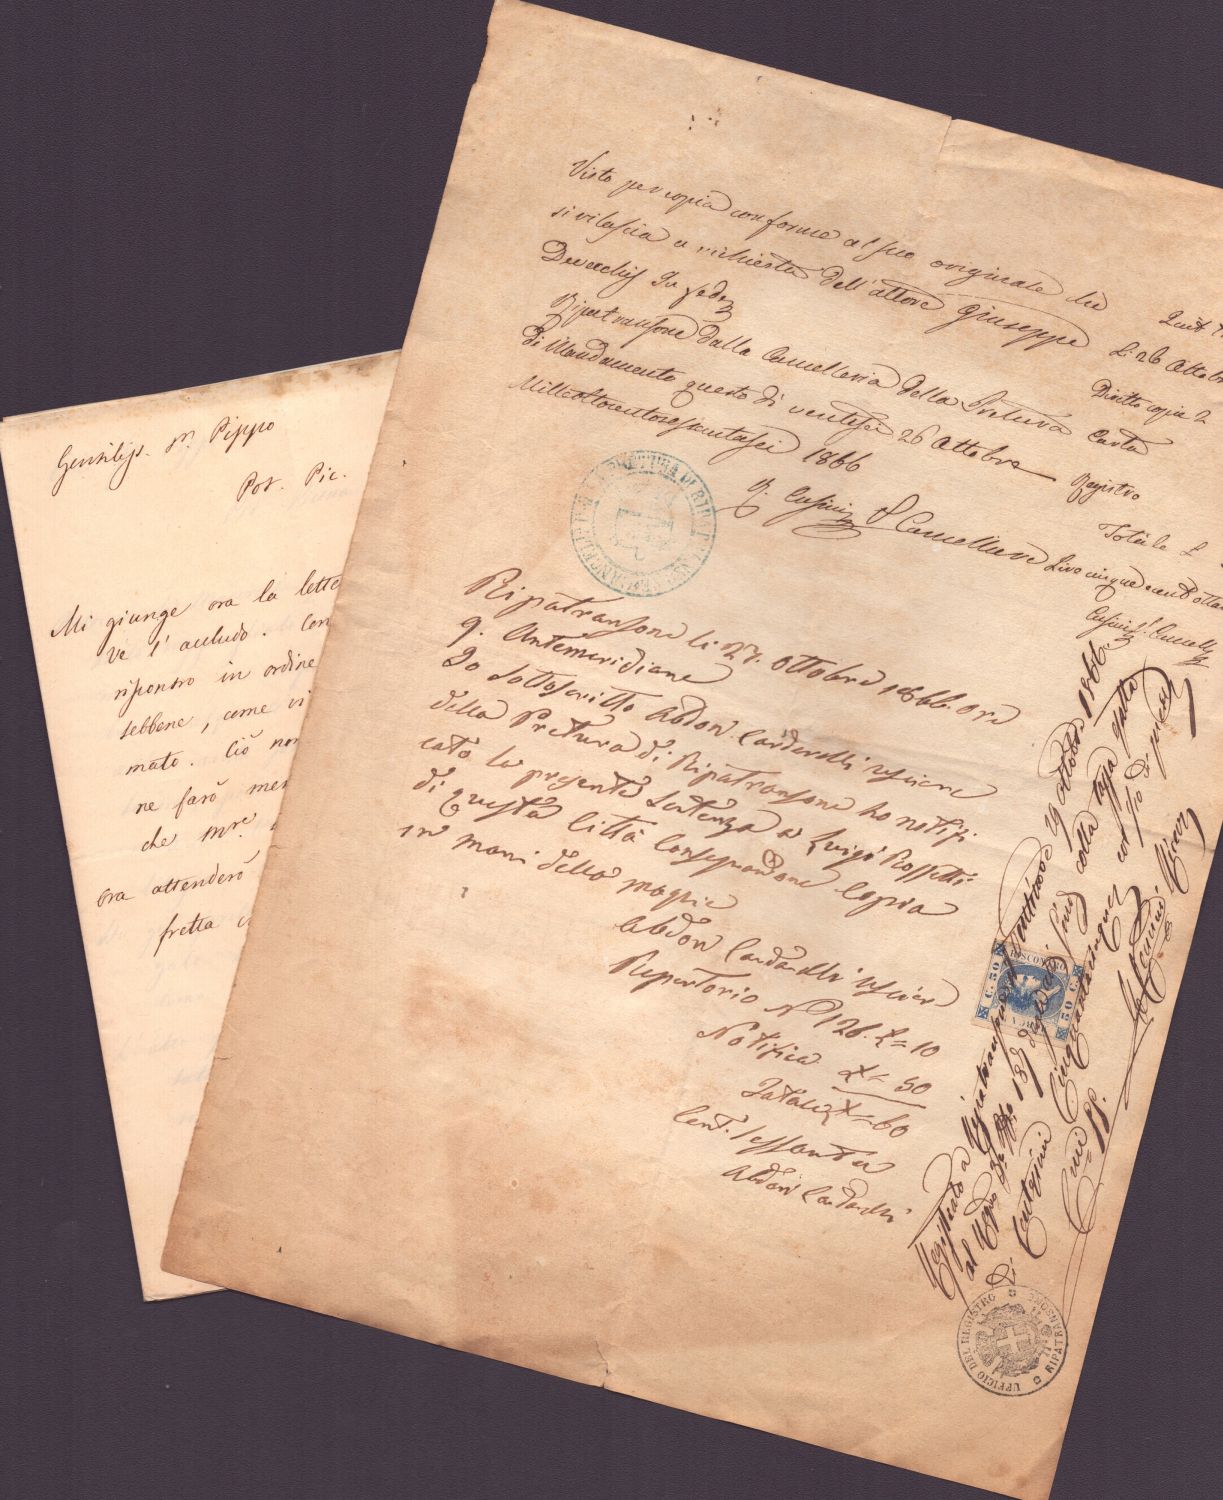 Gentilis. Sr. Pippo
Pos. Pic.
Mi giunge ora la lette
ve l' accludo. Con
riscontro in ordine
sebbene, come vi
mato. Ciò non
ne farò men
che Mre
ora attenderò
fretta
Visto per copia conforme al suo originale che
si rilascia a richiesta dell' attore Giuseppe
In fede
Ripatransone dalla Cancelleria della Pretura
di Mandamento questo di ventisei 26 Ottobre
Milleottocentosessantasei 1866
Li 26 Ottobre
Diritto copia 2
Carta
Registro
Totale L
Lire cinque cent. ottan
Il Cancelliere
CANCELLERIA PRETURA DI RIPATRANSONE
Ripatransone li 27. Ottobre 1866. Ore
9. Antemeridiane
Io sottoscritto Abdon Cardarelli usciere
della Pretura di Ripatransone ho notifi
cato la presente Sentenza a Luigi Rossetti
di questa Città Consegnandone Copia
in mani della moglie
Abdon Cardarelli usciere
Repertorio N° 126. £= 10
Notifica £= 50
Totale £= 60
Cent. Sessanta
Abdon Cardarelli
Registrato a Ripatransone 29 Ottobre 1866.
al colla tassa
di Centesimi Cinquantacinque
RISCONTRO
C. 50
50 C.
UFFICIO DEL REGISTRO
RIPATRANSONE